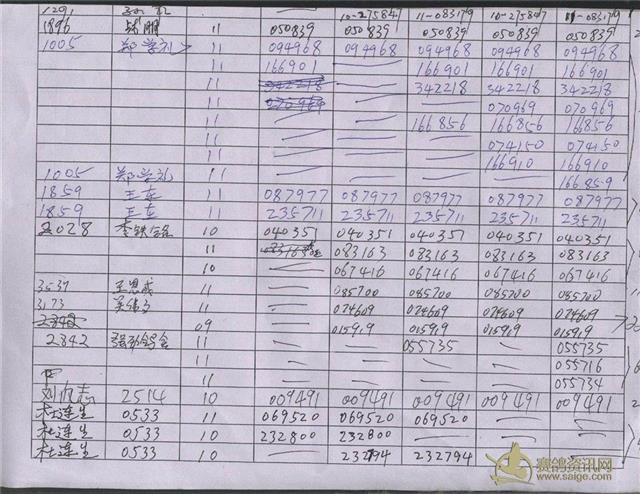 1291
10-275847 11-083179 10-275847 11-083179
1896 11 050839 050839 050839 050839 050839
1005 郑学礼 11 094968 094968 094968 094968 094968
11 166901 — 166901 166901 166901
11 342218 — 342218 342218 342218
11 070969 — — 070969 070969
11 — — 166856 166856 166856
11 — — — 074150 074150
11 — — — 166910 166910
166859
1005 郑学礼 11
1859 王东 11 087977 087977 087977 087977 087977
1859 王东 11 235711 235711 235711 235711 235711
2028 10 040351 040351 040351 040351 040351
11 083163 083163 083163 083163 083163
10 — 067416 067416 067416 067416
3537 王恩成 11 — 085700 085700 085700 085700
3173 11 — 074609 074609 074609 074609
2842 09 — 015919 015919 015919 015919
2842 11 — — 055735 — 055735
11 — — — — 055716
11 — — — — 055734
2514 10 009491 009491 009491 009491 009491
杜连生 0533 11 069520 069520 069520 — —
杜连生 0533 10 232800 232800 — — —
杜连生 0533 10 — 232794 232794 —
赛鸽资讯网
www.saige.com